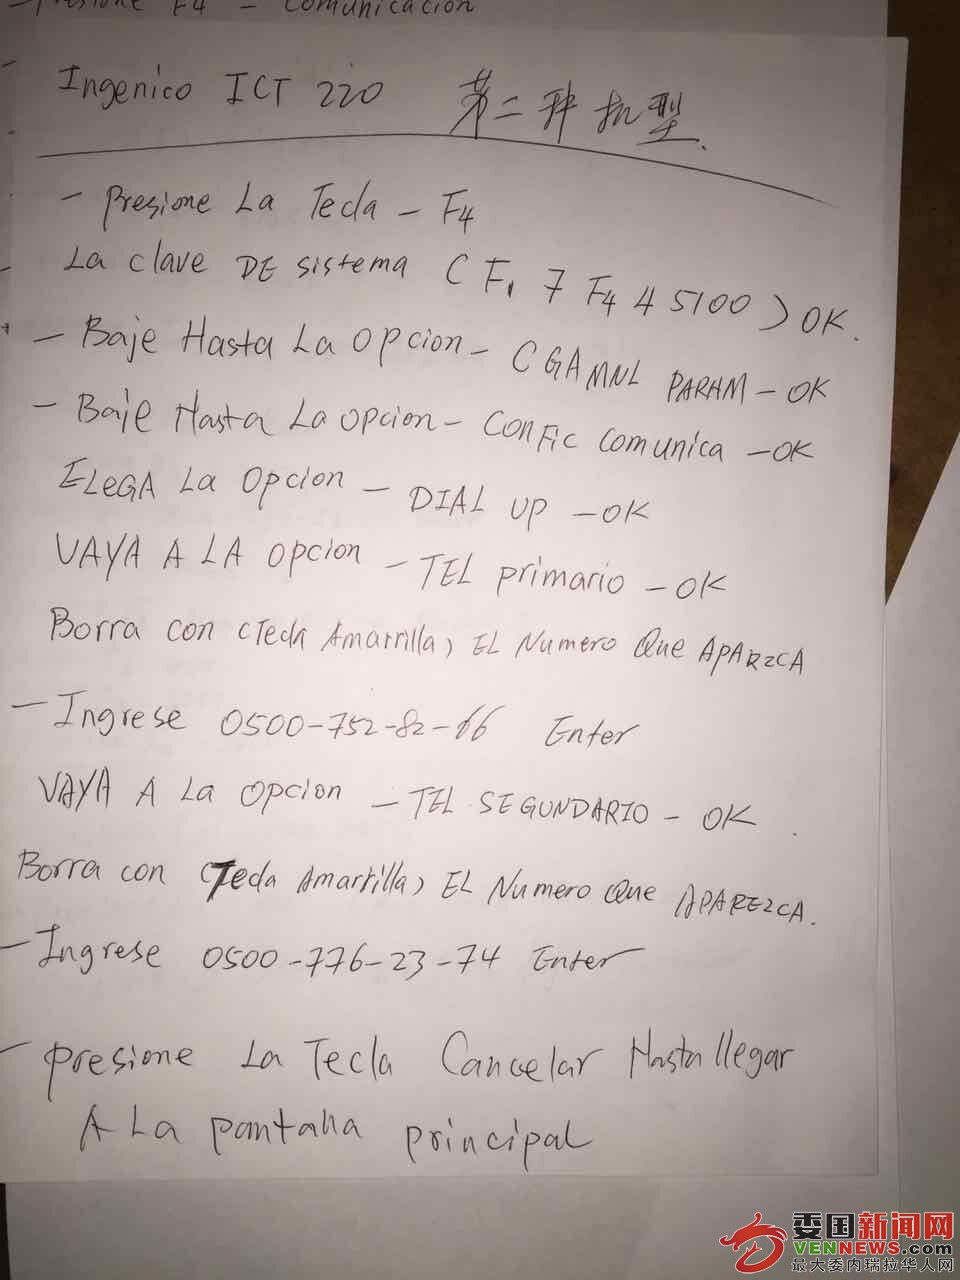 Presione F4 - Comunicacion
Ingenico ICT 220 第二种机型.
- Presione La Tecla - F4
La clave DE sistema ( F1 7 F4 4 5100 ) OK.
- Baje Hasta La Opcion - CGA MNL PARAM - OK
- Baje Hasta La Opcion - CONFIC Comunica - OK
ELEGA La Opcion - DIAL UP - OK
VAYA A LA Opcion - TEL primario - OK
Borra con (Tecla Amarrilla) EL Numero Que APAREZCA
- Ingrese 0500-752-82-66 Enter
VAYA A La Opcion - TEL SEGUNDARIO - OK .
Borra con (Tecla Amarrilla) EL Numero Que APAREZCA.
- Ingrese 0500-776-23-74 Enter
- Presione La Tecla Cancelar Hasta llegar
A La pantalla principal
委国新闻网
VENNEWS.com
最大委内瑞拉华人网